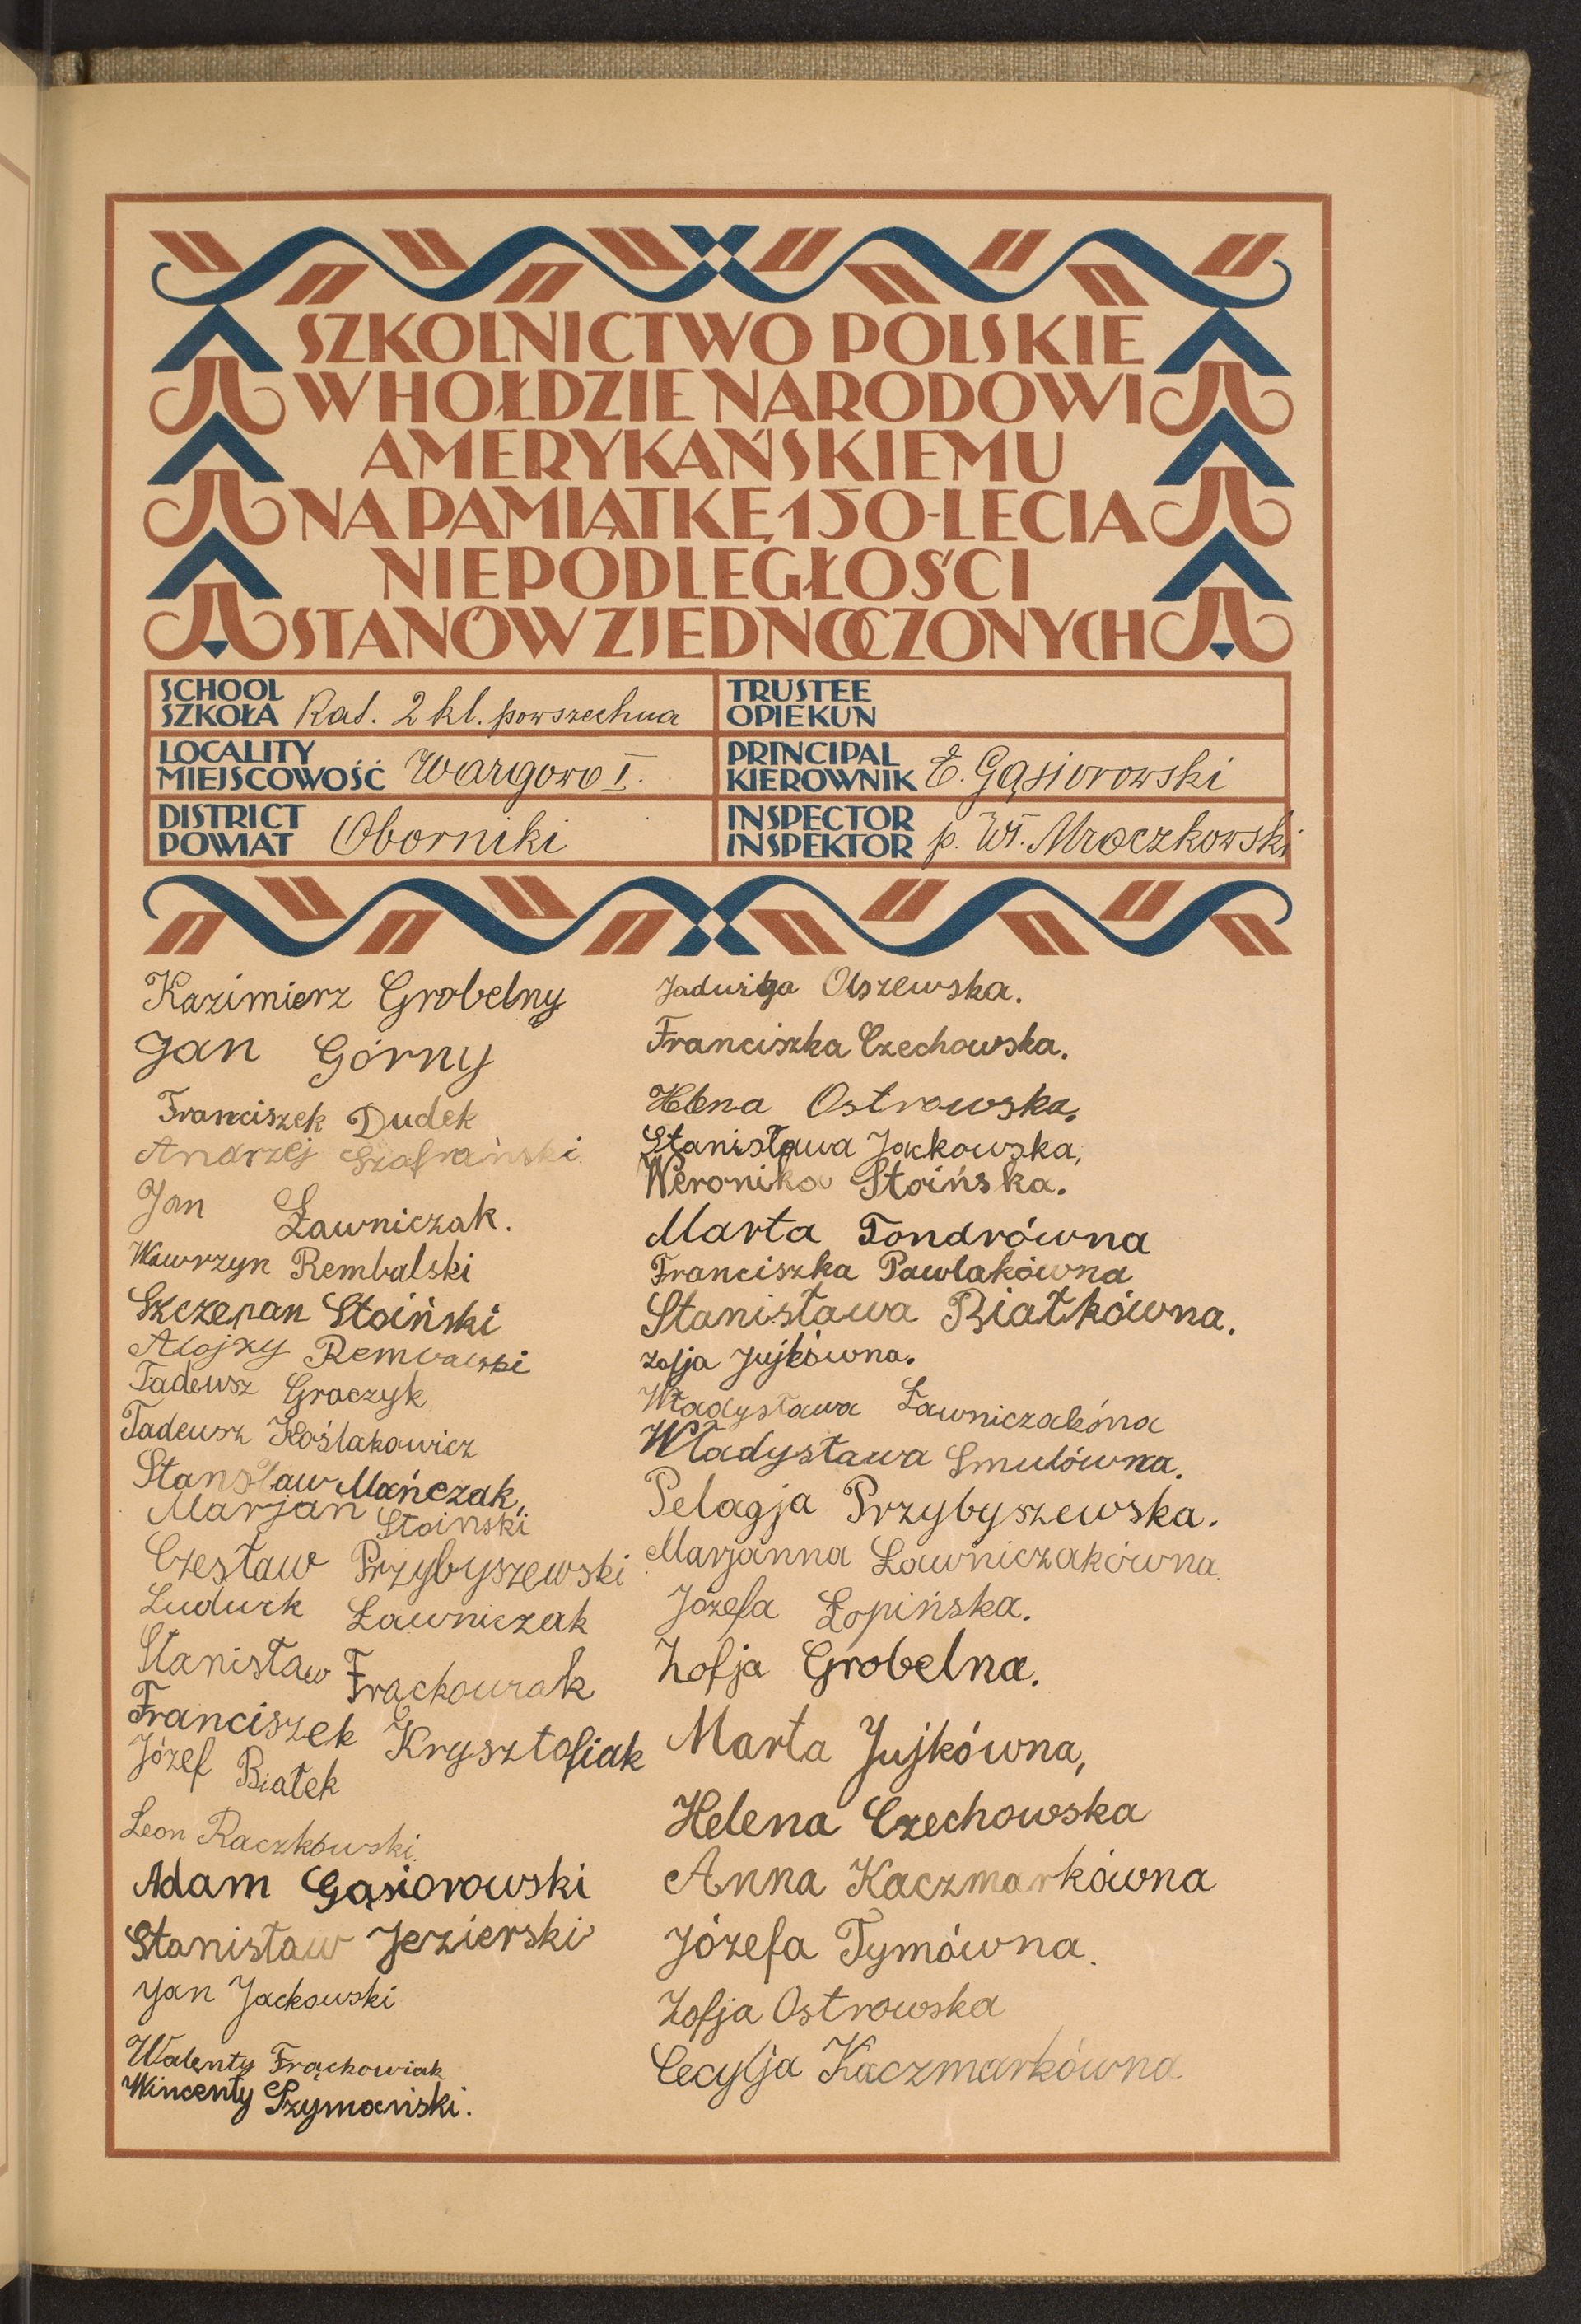 SZKOLNICTWO POLSKIE
W HOŁDZIE NARODOWI
AMERYKAŃSKIEMU
NA PAMIĄTKĘ 150-LECIA
NIEPODLEGŁOŚCI
STANÓW ZJEDNOCZONYCH
SCHOOL
SZKOŁA Kat. 2 kl. powszechna
TRUSTEE
OPIEKUN
LOCALITY
MIEJSCOWOŚĆ Wargowo I.
PRINCIPAL
KIEROWNIK E. Gąsiorowski
DISTRICT
POWIAT Oborniki
INSPECTOR
INSPEKTOR p. Wł. Mroczkowski
Kazimierz Grobelny
Jan Górny
Franciszek Dudek
Andrzej Szafrański
Jan Ławniczak.
Wawrzyn Rembalski
Szczepan Stoiński
Alojzy Rembalski
Tadeusz Graczyk
Tadeusz Koślakowicz
Stanisław Mańczak,
Marjan Stoinski
Czesław Przybyszewski
Ludwik Ławniczak
Stanisław Frąckowiak
Franciszek Krysztofiak
Józef Białek
Leon Raczkowski.
Adam Gąsiorowski
Stanisław Jezierski
Jan Jackowski
Walenty Frąckowiak
Wincenty Szymański.
Jadwiga Olszewska.
Franciszka Czechowska.
Helena Ostrowska,
Stanisława Jackowska,
Weronika Stoińska.
Marta Tondrówna
Franciszka Pawlakówna
Stanisława Białkówna.
Zofja Jujkówna.
Władysława Ławniczakóna
Władysława Smulówna.
Pelagja Przybyszewska.
Marjanna Ławniczakówna.
Józefa Łopińska.
Zofja Grobelna.
Marta Jujkówna,
Helena Czechowska
Anna Kaczmarkówna
Józefa Tymówna.
Zofja Ostrowska
Cecylja Kaczmarkówna